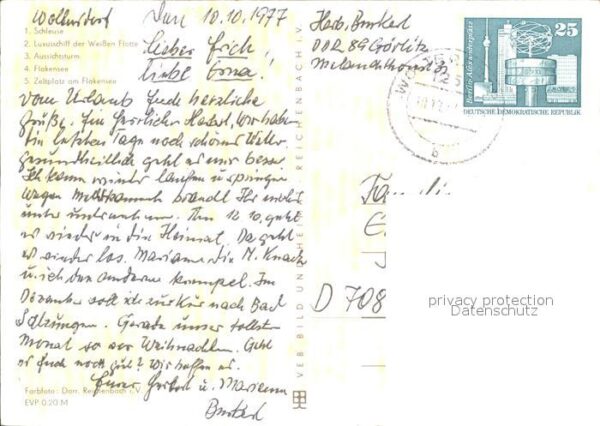 Woltersdorf Den 10.10.1977
1. Schleuse
2. Luxusschiff der Weißen Flotte
3. Aussichtsturm
4. Flakensee
5. Zeltplatz am Flakensee
Lieber Erich,
liebe Erna!
vom Urlaub Euch herzliche
Grüße. Ein Herbst, wir haben
in letzten Tage noch schönes Wetter,
gesundheitlich geht es mir besser.
Ich kann wieder laufen u springen
wegen braucht Ihr nichts
unter Am 12 10. geht
es wieder in die Heimat. Da geht
es wieder los. Marianne die M. Knack
u. ich den anderen Krempel. Im
November soll ich zur Kur nach Bad
Salzungen. Gerade unser tollster
Monat so vor Weihnachten. Geht
es Euch noch gut? Wir hoffen es.
Eurer Herbert u. Marianne
Burkert
Farbfoto: Darr, Reichenbach i. V.
EVP 0,20 M
VEB BILD UND HEIMAT REICHENBACH I. V.
Herb. Burkert
DDR 89 Görlitz
Berlin-Alexanderplatz
25
DEUTSCHE DEMOKRATISCHE REPUBLIK
b
Fa
E
D 708
privacy protection
Datenschutz